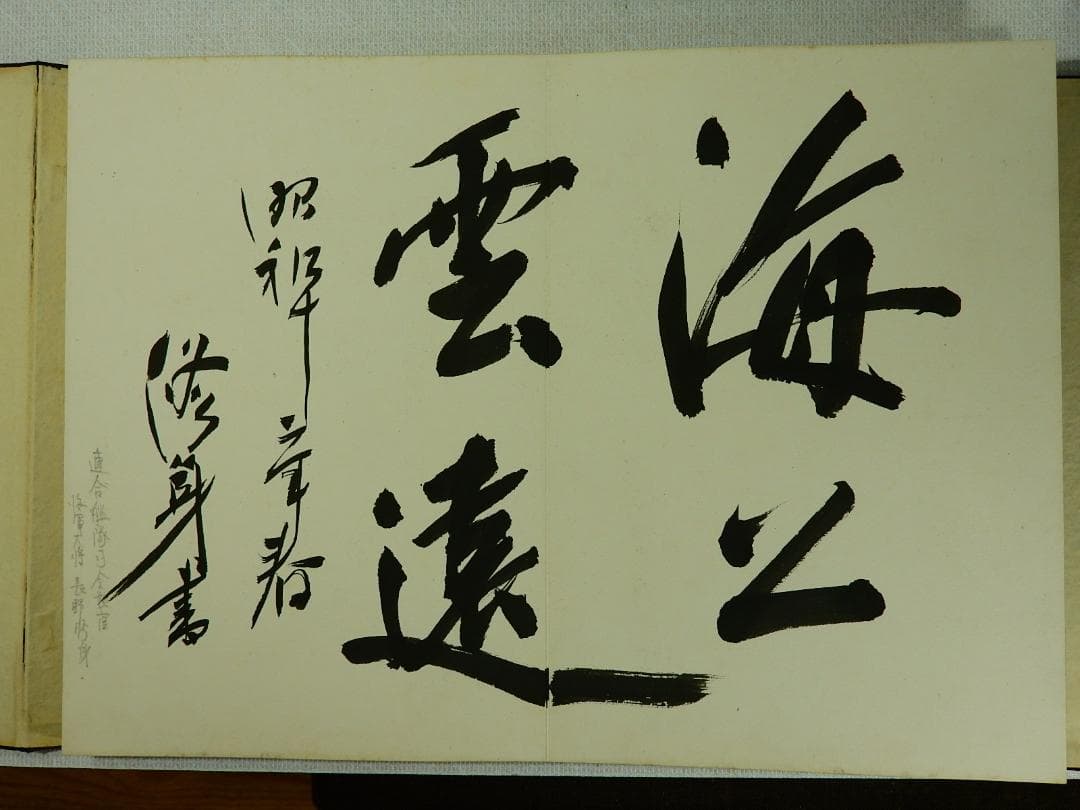 海上
雲遠
昭和十二年春
修身書
連合艦隊司令長官
海軍大将 長野修身